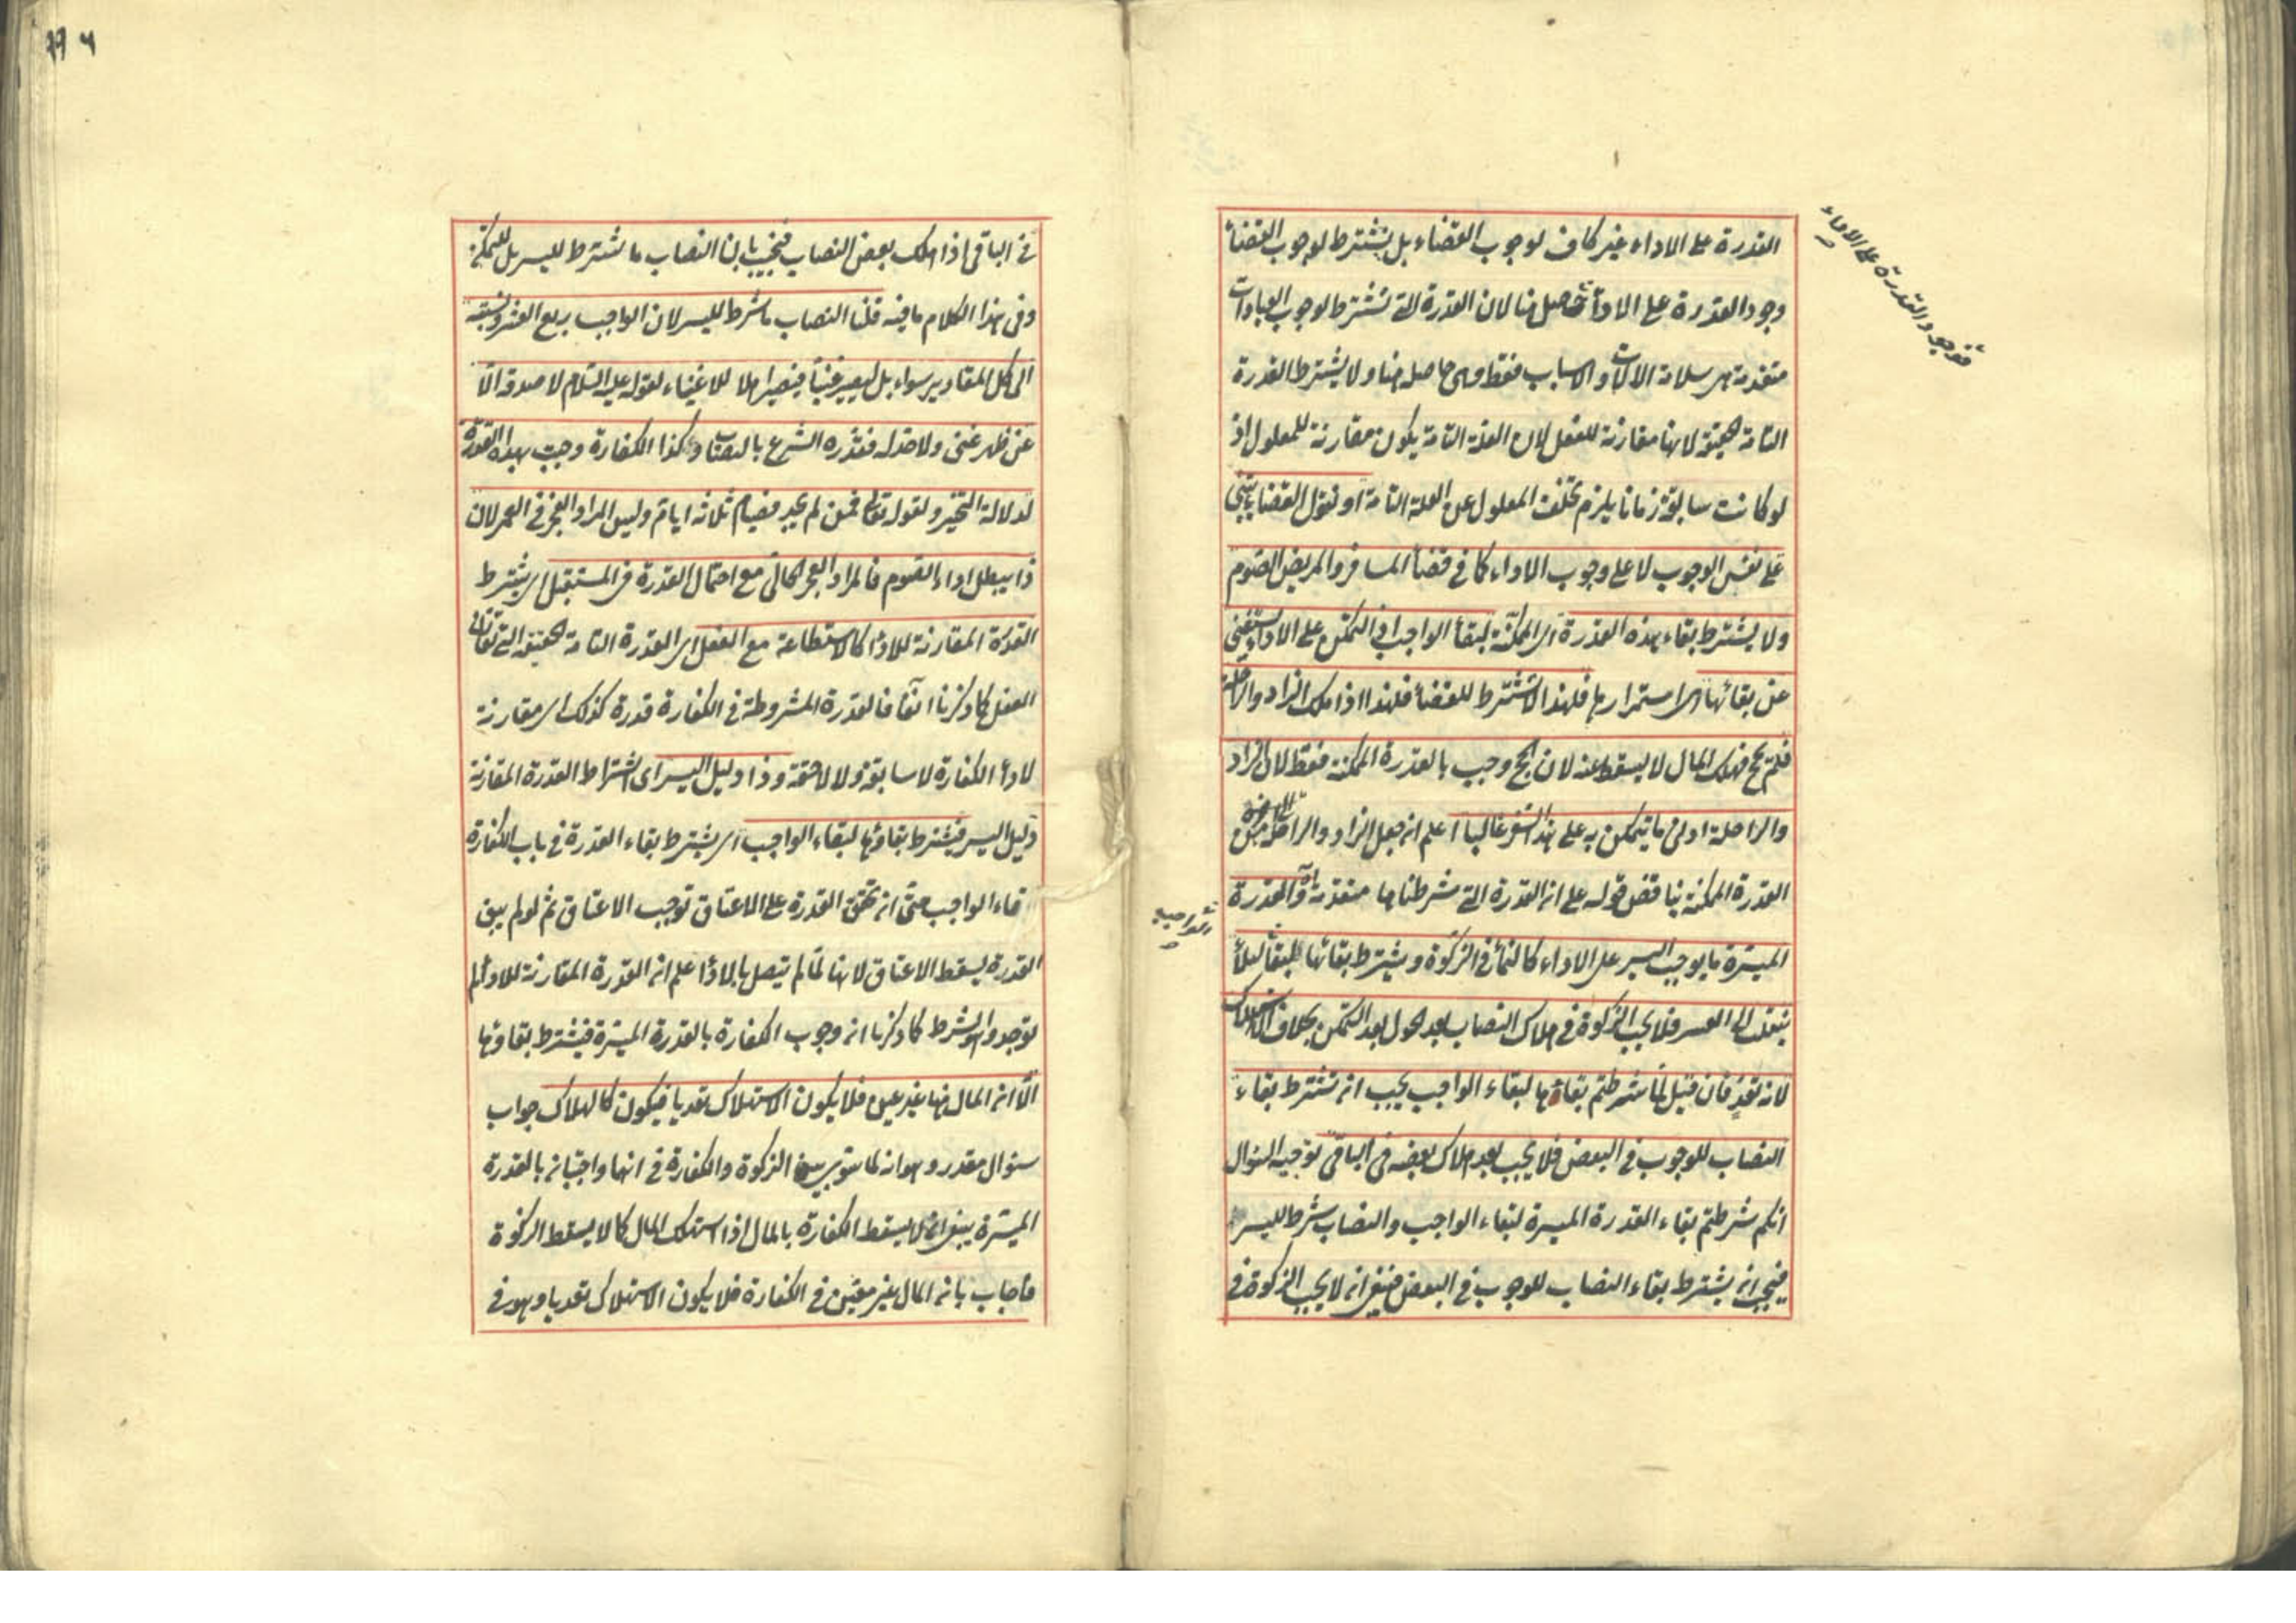 القدرة على الاداء غير كاف لوجوب القضاء بل يشترط لوجوب القضأ
وجود القدرة على الادأ حاصل هنا لان القدرة التى تشترط لوجوب العبادات
متقدمة هى سلامة الالات والاسباب فقط وهى حاصلة هنا ولا يشترط القدرة
التامة الحقيقة لانها مقارنة للفعل لان العلة التامة يكون مقارنة للمعلول اذ
لو كانت سابقة زمانا يلزم تخلف المعلول عن العلة التامة او نقول القضا يبتنى
على نفس الوجوب لا على وجوب الاداء كما فى قضأ المسافر والمريض الصوم
ولا يشترط بقاء هذه القدرة اى الممكنة لبقأ الواجب اذ التمكن على الاداء يستغنى
عن بقائها اى استمرارها فلهذا لا تشترط للقضأ فلهذا اذا ملك الزاد والراحلة
فلم يحج فهلك المال لا يسقط عنه لان الحج وجب بالقدرة الممكنة فقط لان الزاد
والراحلة ادنى ما يتمكن به على هذا السفر غالبا اعلم ان جعل الزاد والراحلة من
القدرة الممكنة يناقض قوله على ان القدرة التى شرطناها متقدمة اه والقدرة
الميسرة ما يوجب اليسر على الاداء كالنمأ فى الزكوة ويشترط بقائها لبقأ لئلا
ينقلب الى العسر فلا يجب الزكوة فى هلاك النصاب بعد الحول بعد التمكن بخلاف الاستهلاك
لانه تعد فان قيل لما شرطتم بقاءها لبقاء الواجب يجب ان تشترط بقاء
النصاب للوجوب فى البعض فلا يجب بعد هلاك بعضه فى الباقى توجيه السؤال
انكم شرطتم بقاء القدرة الميسرة لبقاء الواجب والنصاب شرط لليسر
فيجب ان يشترط بقاء النصاب للوجوب فى البعض فينبغى ان لا يجب الزكوة فى
فوجود القدرة على الاداء
٩٩٦
فى الباقى اذا هلك بعض النصاب فيجيب بان النصاب ما شترط لليسر بل للتمكن
وفى هذا الكلام ما فيه قلنا النصاب ما شرط لليسر لان الواجب ربع العشر ونسبته
الى كل المقادير سواء بل ليصير غنيا فيصير اهلا للاغنياء لقوله عليه السلام لا صدقة الا
عن ظهر غنى ولا حد له فقدره الشرع بالنصاب وكذا الكفارة وجبت بهذه القدرة
لدلالة التخير ولقوله تعالى فمن لم يجد فصيام ثلاثة ايام وليس المراد العجز فى العمر لان
ذا يبطل اداء الصوم فالمراد العجز الحالى مع احتمال القدرة فى المستقبل اى يشترط
القدرة المقارنة للادا كالاستطاعة مع الفعل اى القدرة التامة الحقيقة التى تقارن
الفعل كما ذكرنا آنفا فالقدرة المشروطة فى الكفارة قدرة كذلك اى مقارنة
لادأ الكفارة لا سابقة ولا لاحقة وذا دليل اليسر اى اشتراط القدرة المقارنة
دليل اليسر فيشترط بقاؤها لبقاء الواجب اى يشترط بقاء القدرة فى باب الكفارة
قاء الواجب حتى ان تحقق القدرة على الاعتاق توجب الاعتاق ثم لو لم يبق
القدرة يسقط الاعتاق لانها لما لم يتصل بالادأ علم ان القدرة المقارنة للادأ لم
توجد والشرط كما ذكرنا ان وجوب الكفارة بالقدرة الميسرة فيشترط بقاؤها
الا ان المال هنا غير عين فلا يكون الاستهلاك تعديا فيكون كالهلاك جواب
سؤال مقدر وهو انه لما سوى بين الزكوة والكفارة فى انها واجبتان بالقدرة
الميسرة ينبغى ان لا يسقط الكفارة بالمال اذا استهلك المال كما لا يسقط الزكوة
فاجاب بان المال غير معين فى الكفارة فلا يكون الاستهلاك تعديا وهو فى